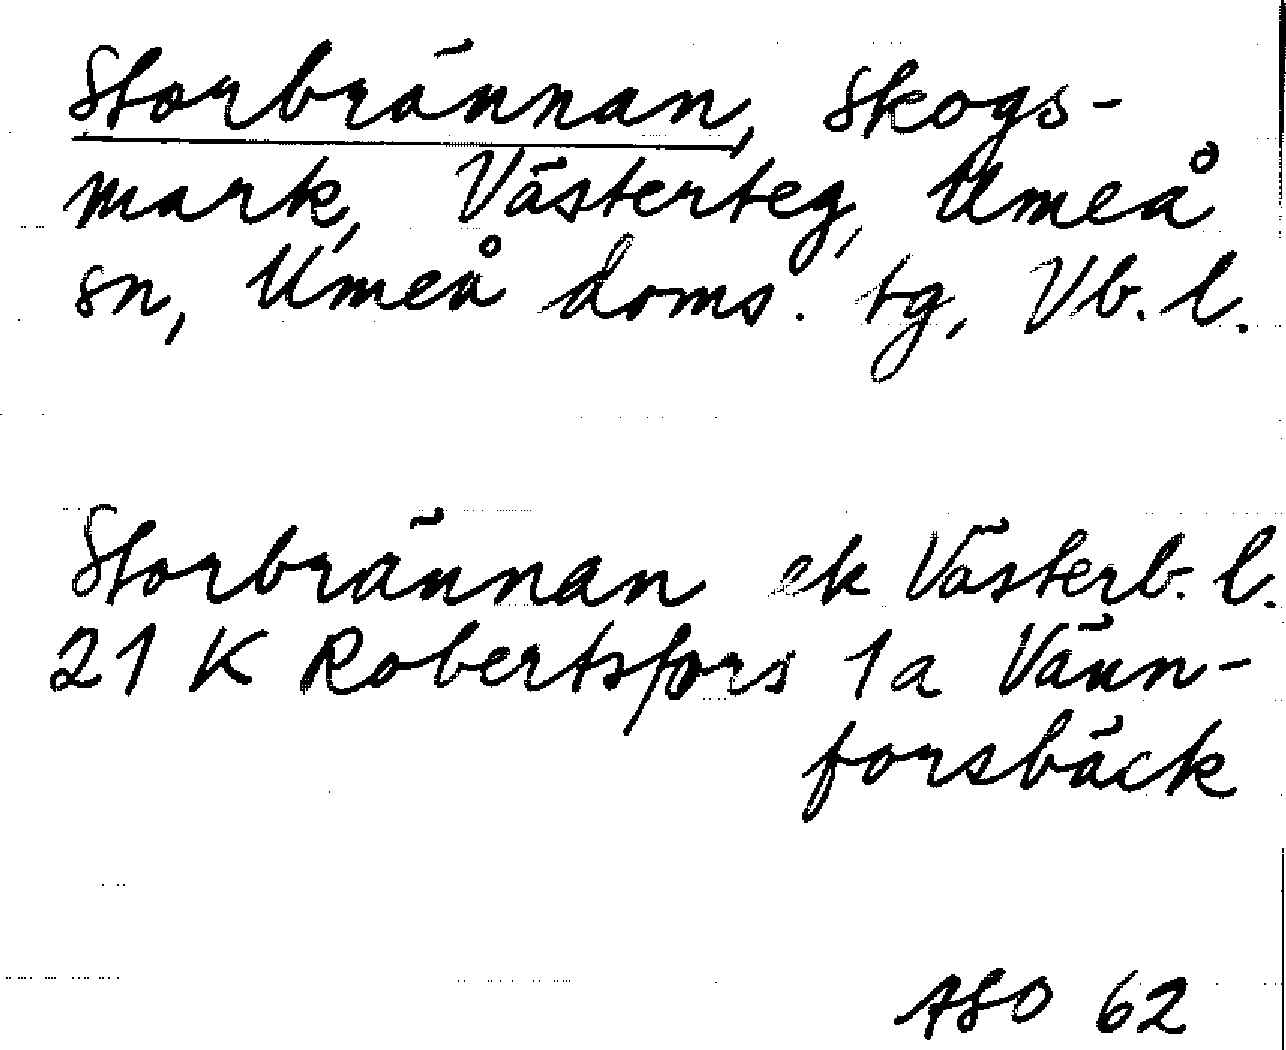 Storbrännan, Skogs-
mark, Västerteg, Umeå
sn, Umeå doms. tg, Vb. l.
Storbrännan ek Västerb. l.
21 K Robertsfors 1a Vänn-
forsbäck
ASO 62